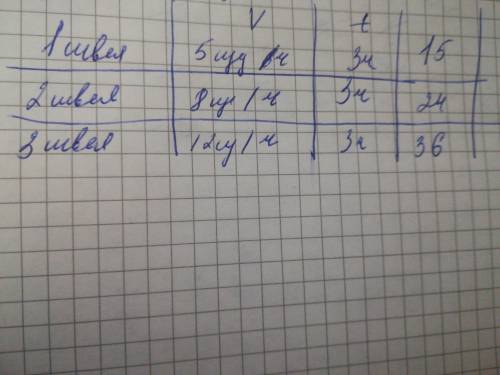 V t
1 швея 5 изд/ч 3ч 15
2 швея 8 изд/ч 3ч 24
3 швея 12изд/ч 3ч 36